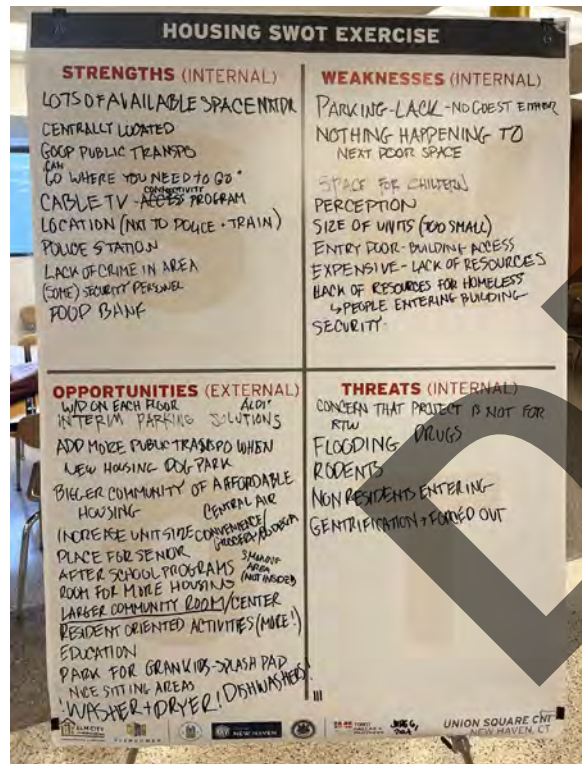 HOUSING SWOT EXERCISE
STRENGTHS (INTERNAL)
LOTS OF AVAILABLE SPACE
CENTRALLY LOCATED
GOOD PUBLIC TRANSPO
CAN
GO WHERE YOU NEED TO GO
CONNECTIVITY
CABLE TV - ACCESS PROGRAM
LOCATION (NXT TO POLICE + TRAIN)
POLICE STATION
LACK OF CRIME IN AREA
(SOME) SECURITY PERSONEL
FOOD BANK
WEAKNESSES (INTERNAL)
PARKING - LACK - NO GUEST EITHER
NOTHING HAPPENING TO
NEXT DOOR SPACE
SPACE FOR CHILDREN
PERCEPTION
SIZE OF UNITS (TOO SMALL)
ENTRY DOOR - BUILDING ACCESS
EXPENSIVE - LACK OF RESOURCES
LACK OF RESOURCES FOR HOMELESS
↳ PEOPLE ENTERING BUILDING
SECURITY
OPPORTUNITIES (EXTERNAL)
W/D ON EACH FLOOR ALDI
INTERIM PARKING SOLUTIONS
ADD MORE PUBLIC TRANSPO WHEN
NEW HOUSING DOG PARK
BIGGER COMMUNITY OF AFFORDABLE
HOUSING CENTRAL AIR
INCREASE UNIT SIZE CONVENIENCE/
GROCERY/BODEGA
PLACE FOR SENIOR
AFTER SCHOOL PROGRAMS
AREA
(NOT INSIDE)
ROOM FOR MORE HOUSING
LARGER COMMUNITY ROOM/CENTER
RESIDENT ORIENTED ACTIVITIES (MORE!)
EDUCATION
PARK FOR GRANKIDS - SPLASH PAD
NICE SITTING AREAS
! WASHER + DRYER! DISHWASHERS!
THREATS (INTERNAL)
CONCERN THAT PROJECT IS NOT FOR
RTW
FLOODING DRUGS
RODENTS
NON RESIDENTS ENTERING
GENTRIFICATION + FORCED OUT
ELM CITY
NEW HAVEN
JUNE 6,
UNION SQUARE CNI
NEW HAVEN, CT